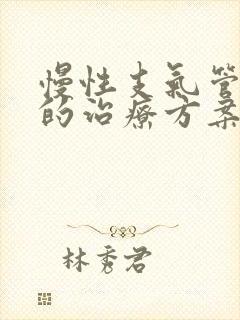 慢性支氣管
的治療方案
林秀君